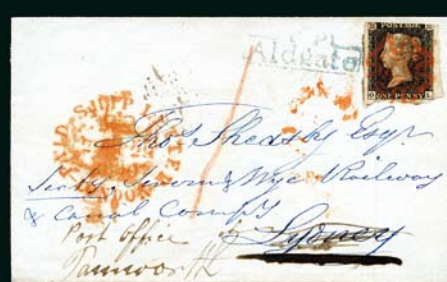 T.P
Aldgate
POSTAGE
ONE PENNY
PAID SHIP LETTER
Thos. Sheasby Esqr.
Secty. Severn & Wye Railway
& Canal Comp
Post Office
Lydney
Tamworth